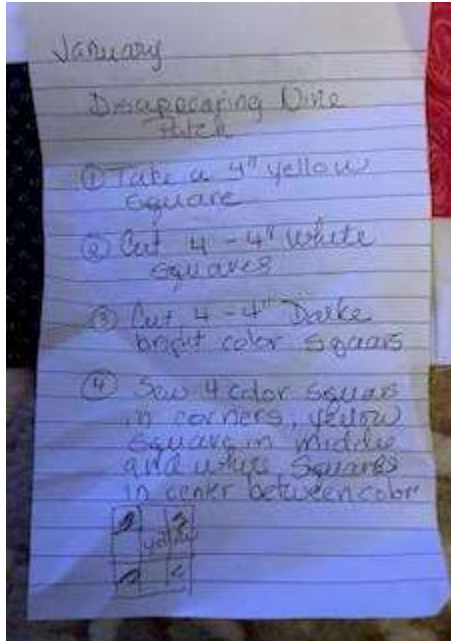 January
Disappearing Nine
Patch
① Take a 4" yellow
square
② Cut 4 - 4" White
squares
③ Cut 4 - 4" Darke
bright color sqaars
④ Sew 4 color squars
in corners, yellow
square in middle
and white squares
in center between color
yellow